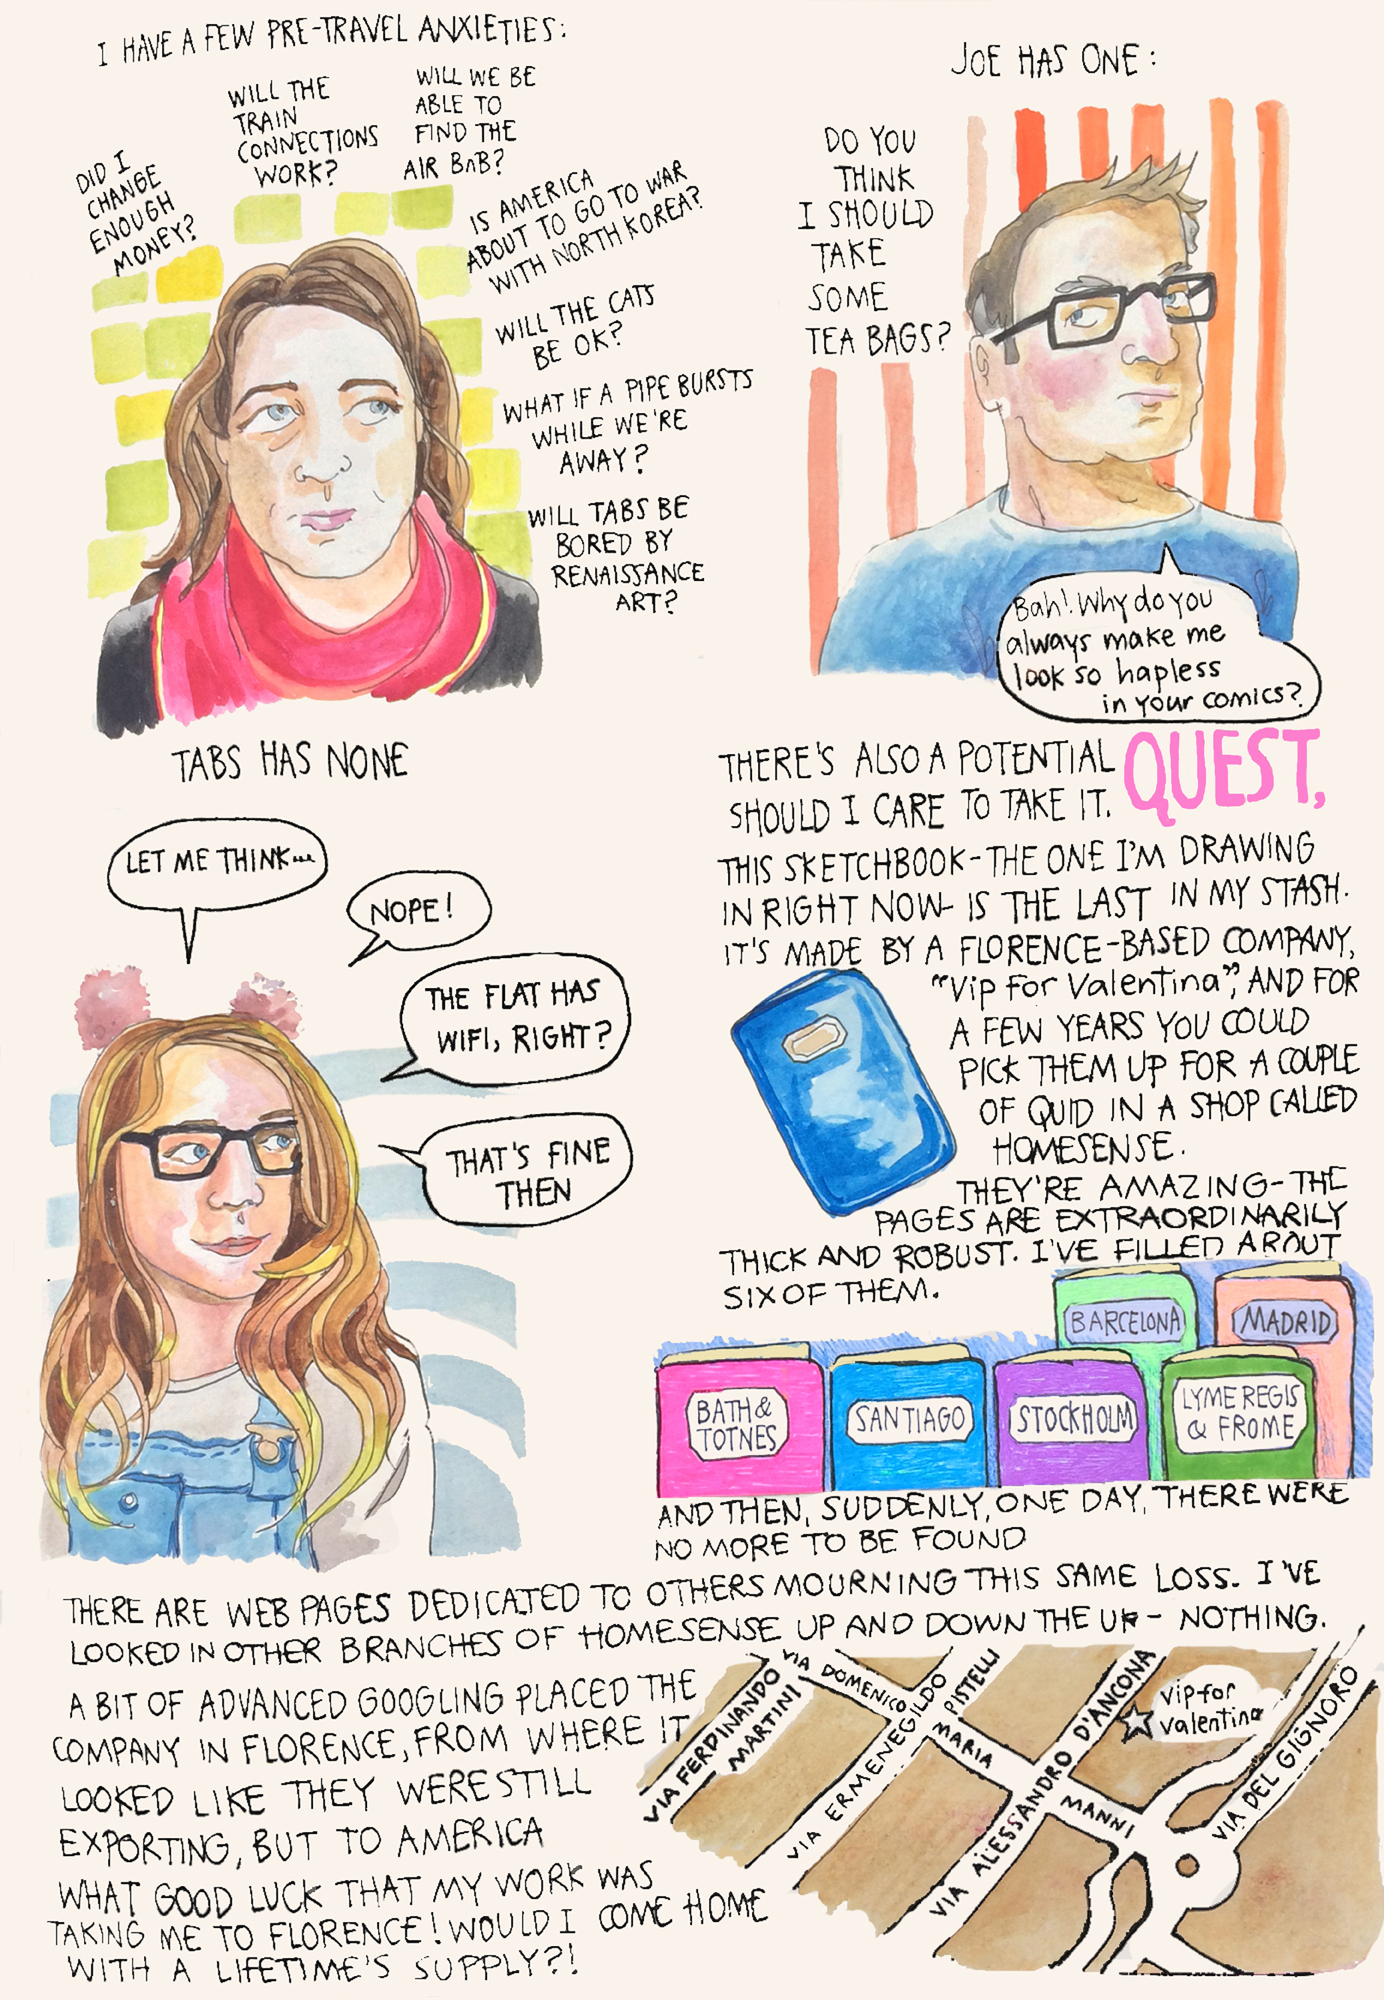 I HAVE A FEW PRE-TRAVEL ANXIETIES:
DID I
CHANGE
ENOUGH
MONEY?
WILL THE
TRAIN
CONNECTIONS
WORK?
WILL WE BE
ABLE TO
FIND THE
AIR BnB?
IS AMERICA
ABOUT TO GO TO WAR
WITH NORTH KOREA?
WILL THE CATS
BE OK?
WHAT IF A PIPE BURSTS
WHILE WE'RE
AWAY?
WILL TABS BE
BORED BY
RENAISSANCE
ART?
JOE HAS ONE:
DO YOU
THINK
I SHOULD
TAKE
SOME
TEA BAGS?
Bah! Why do you
always make me
look so hapless
in your comics?
TABS HAS NONE
LET ME THINK...
NOPE!
THE FLAT HAS
WIFI, RIGHT?
THAT'S FINE
THEN
THERE'S ALSO A POTENTIAL QUEST,
SHOULD I CARE TO TAKE IT.
THIS SKETCHBOOK-THE ONE I'M DRAWING
IN RIGHT NOW- IS THE LAST IN MY STASH.
IT'S MADE BY A FLORENCE-BASED COMPANY,
"Vip for Valentina", AND FOR
A FEW YEARS YOU COULD
PICK THEM UP FOR A COUPLE
OF QUID IN A SHOP CALLED
HOMESENSE.
THEY'RE AMAZING-THE
PAGES ARE EXTRAORDINARILY
THICK AND ROBUST. I'VE FILLED ABOUT
SIX OF THEM.
BARCELONA
MADRID
BATH &
TOTNES
SANTIAGO
STOCKHOLM
LYME REGIS
& FROME
AND THEN, SUDDENLY, ONE DAY, THERE WERE
NO MORE TO BE FOUND
THERE ARE WEB PAGES DEDICATED TO OTHERS MOURNING THIS SAME LOSS. I'VE
LOOKED IN OTHER BRANCHES OF HOMESENSE UP AND DOWN THE UK - NOTHING.
A BIT OF ADVANCED GOOGLING PLACED THE
COMPANY IN FLORENCE, FROM WHERE IT
LOOKED LIKE THEY WERE STILL
EXPORTING, BUT TO AMERICA
WHAT GOOD LUCK THAT MY WORK WAS
TAKING ME TO FLORENCE! WOULD I COME HOME
WITH A LIFETIME'S SUPPLY?!
VIA FERDINANDO
MARTINI
VIA DOMENICO
MARIA
MANNI
VIA ERMENEGILDO
PISTELLI
VIA ALESSANDRO D'ANCONA
Vip for
Valentina
VIA DEL GIGNORO